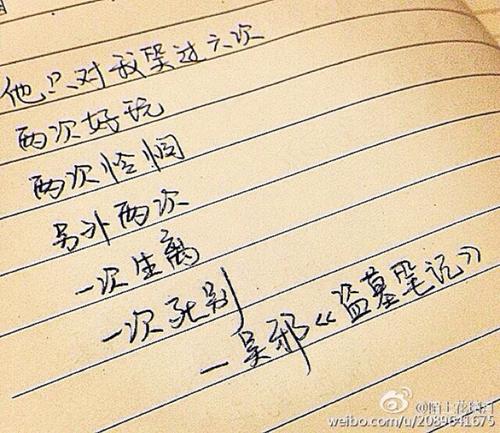 他只对我笑过六次
两次好玩
两次怜悯
另外两次
一次生离
一次死别
—吴邪《盗墓笔记》
weibo.com/u/2089641675